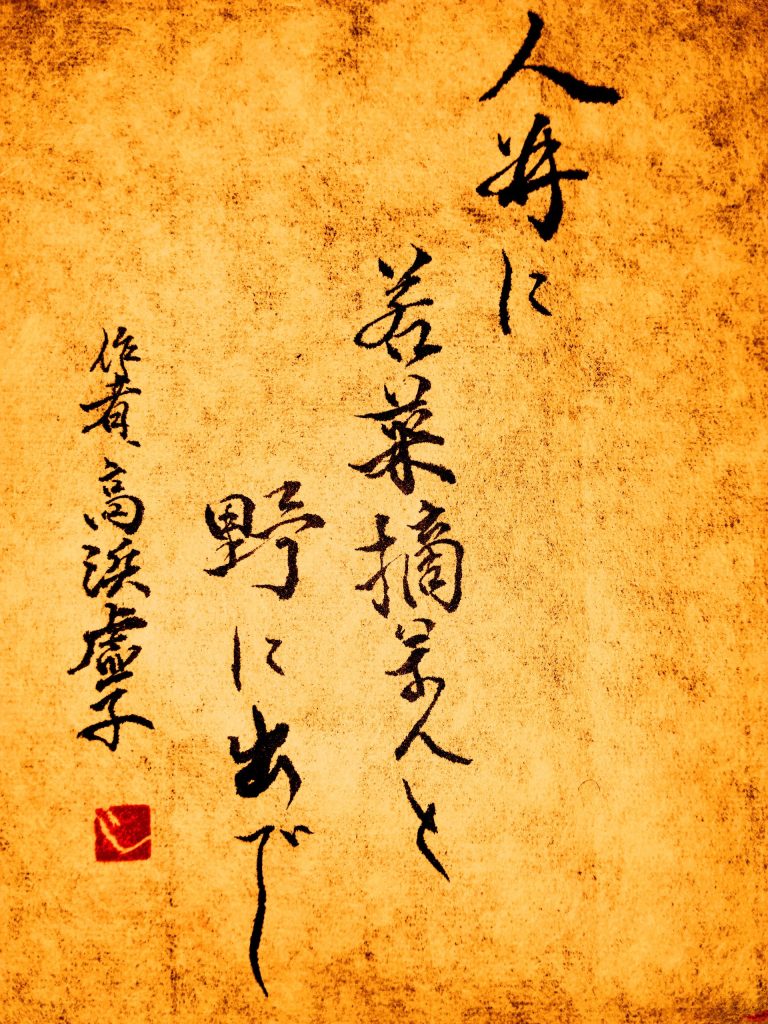 人並に
若菜摘まんと
野に出でし
作者、高浜虚子